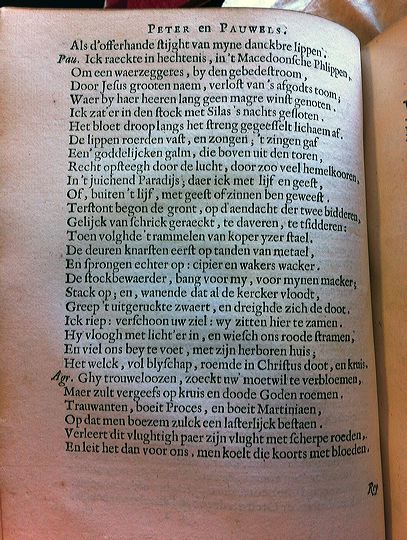 PETER en PAUWELS.
Als d'offerhande stijght van myne danckbre lippen.
Pau. Ick raeckte in hechtenis, in 't Macedoonsche Phlippen,
Om een waerzeggeres, by den gebedestroom,
Door Jesus grooten naem, verlost van 's afgodts toom;
Waer by haer heeren lang geen magre winst genoten.
Ick zat er in den stock met Silas 's nachts gesloten.
Het bloet droop langs het streng gegeesselt lichaem af.
De lippen roerden vast, en zongen; 't zingen gaf
Een' goddelijcken galm, die boven uit den toren,
Recht opsteegh door de lucht, door zoo veel hemelkooren,
In 't juichend Paradijs; daer ick met lijf en geest,
Of, buiten 't lijf, met geest of zinnen ben geweest.
Terstont begon de gront, op d'aendacht der twee bidderen,
Gelijck van schrick geraeckt, te daveren, te tsidderen:
Toen volghde 't rammelen van koper yzer stael.
De deuren knarsten eerst op tanden van metael,
En sprongen echter op: cipier en wakers wacker.
De stockbewaerder, bang voor my, voor mynen macker;
Stack op; en, wanende dat al de kercker vloodt,
Greep 't uitgeruckte zwaert, en dreighde zich de doot.
Ick riep: verschoon uw ziel: wy zitten hier te zamen.
Hy vloogh met licht'er in, en wiesch ons roode stramen;
En viel ons bey te voet, met zijn herboren huis;
Het welck, vol blyschap, roemde in Christus doot, en kruis.
Agr. Ghy trouweloozen, zoeckt uw' moetwil te verbloemen,
Maer zult vergeefs op kruis en doode Goden roemen.
Trauwanten, boeit Proces, en boeit Martiniaen,
Op dat men boezem zulck een lasterlijck bestaen.
Verleert dit vlughtigh paer zijn vlught met scherpe roeden,
En leit het dan voor ons, men koelt die koorts met bloeden.
Rey